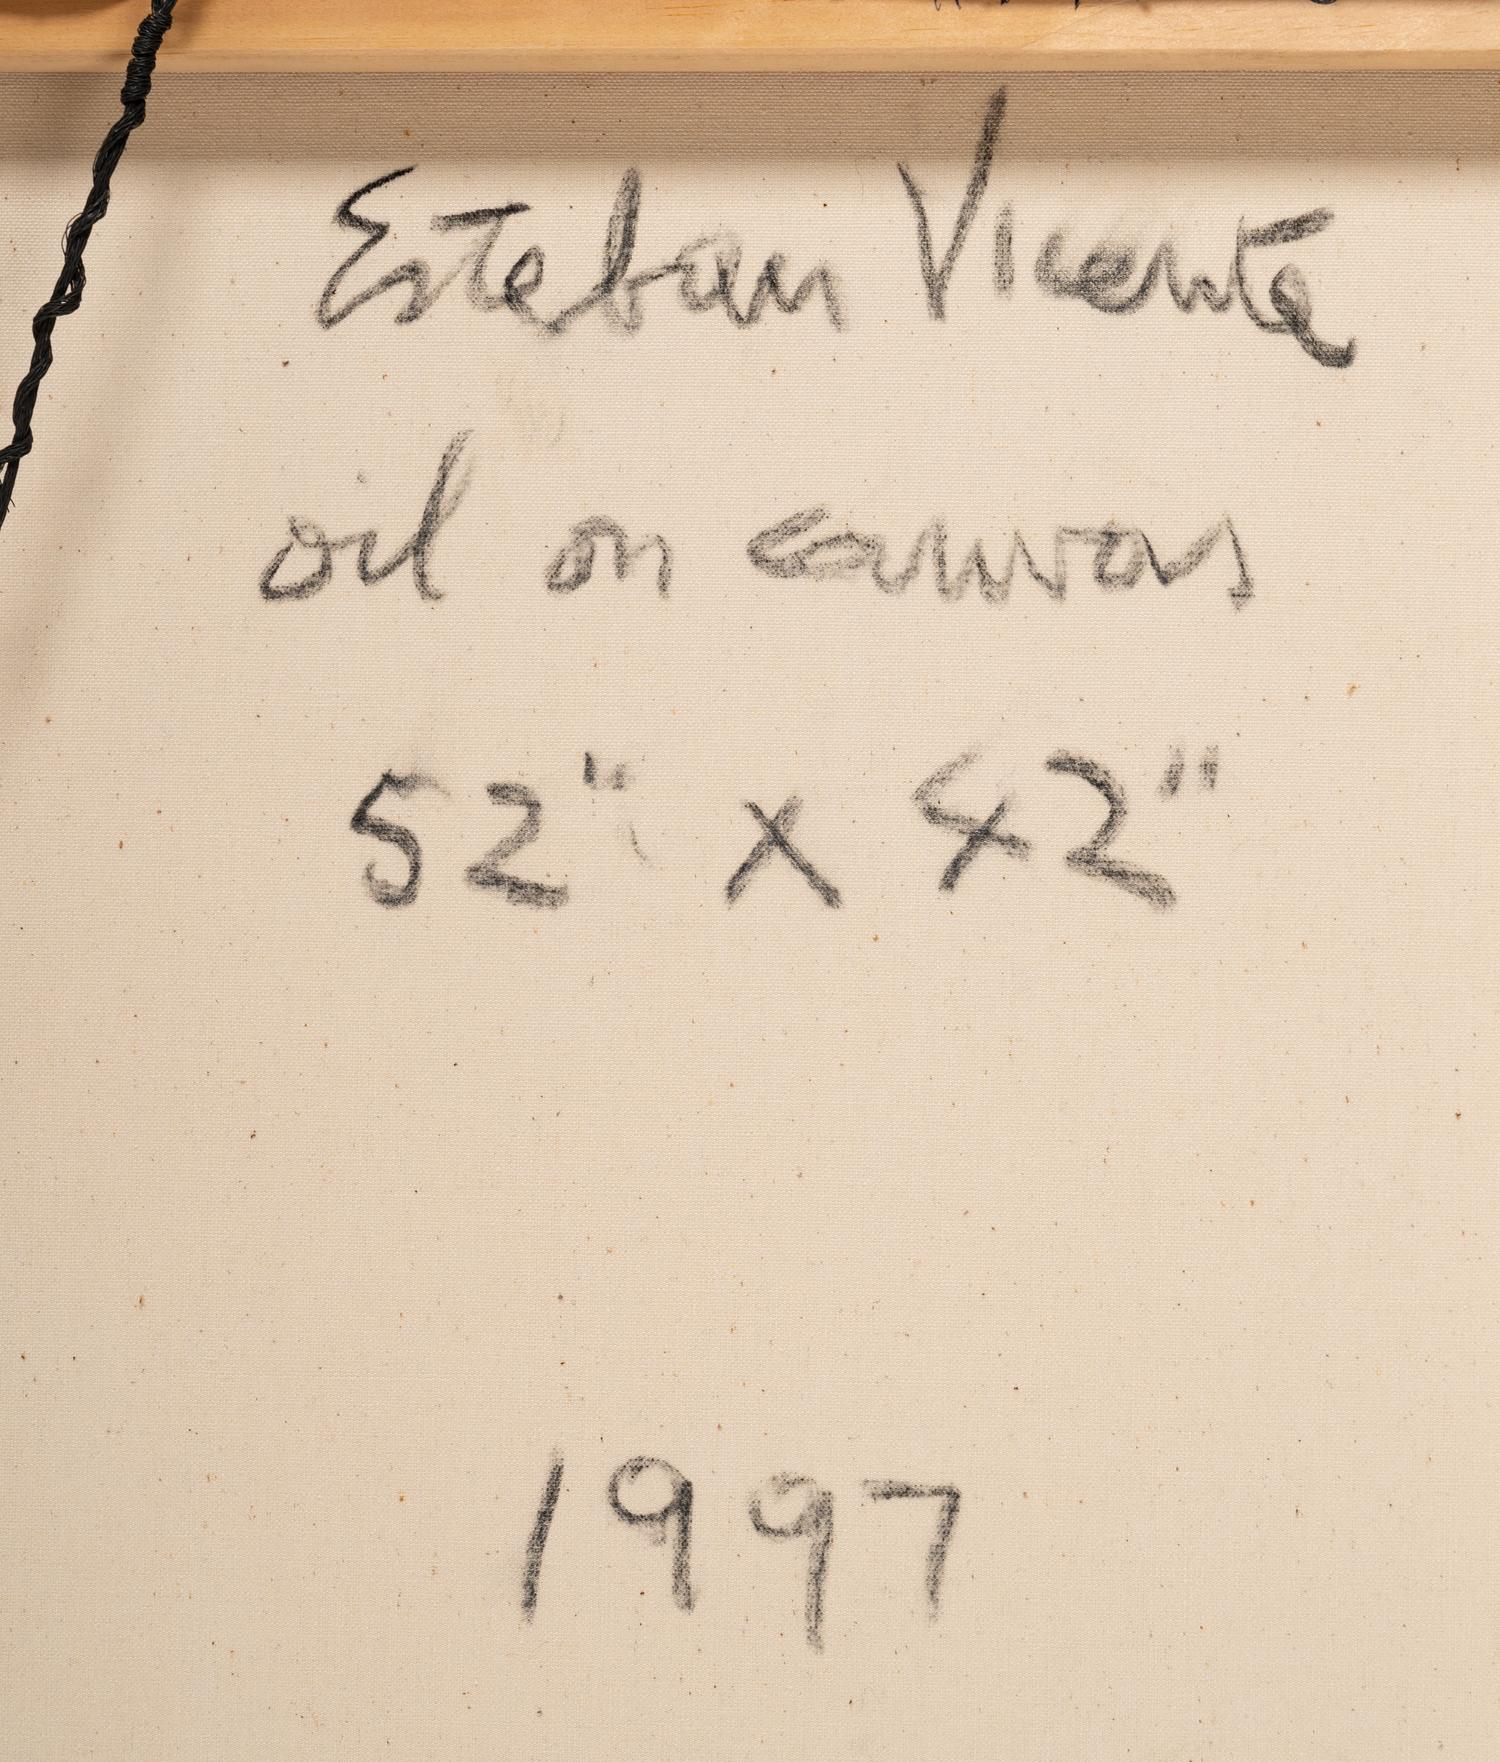 Esteban Vicente
oil on canvas
52" x 42"
1997